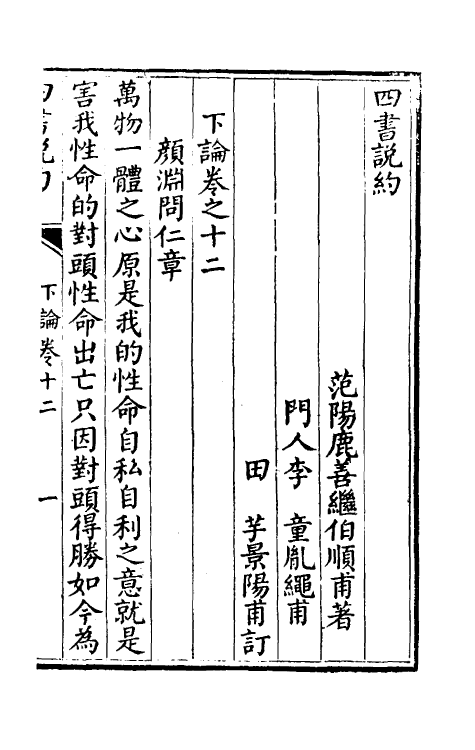 四書説約
范陽鹿善繼伯順甫著
門人李 童胤繩甫
田 芋景陽甫訂
下論卷之十二
顔淵問仁章
萬物一體之心原是我的性命自私自利之意就是
害我性命的對頭性命出亡只因對頭得勝如今為
四書説約 下論卷十二 一